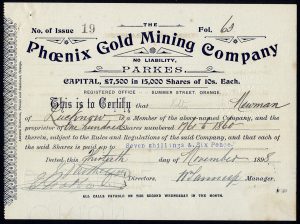 No. of Issue 19
THE
Fol. 60
Phœnix Gold Mining Company
NO LIABILITY,
PARKES.
CAPITAL, £7,500 in 15,000 Shares of 10s. Each.
REGISTERED OFFICE - SUMMER STREET, ORANGE.
This is to Certify that Newman
of Lucknow is a Member of the above-named Company, and the
proprietor of One hundred Shares numbered to
therein, subject to the Rules and Regulations of the said Company, and that each of
the said Shares is paid up to Seven shillings & Six Pence.
Dated this Thirtieth day of November 1898
Directors. Manager.
ALL CALLS PAYABLE ON THE SECOND WEDNESDAY IN THE MONTH.